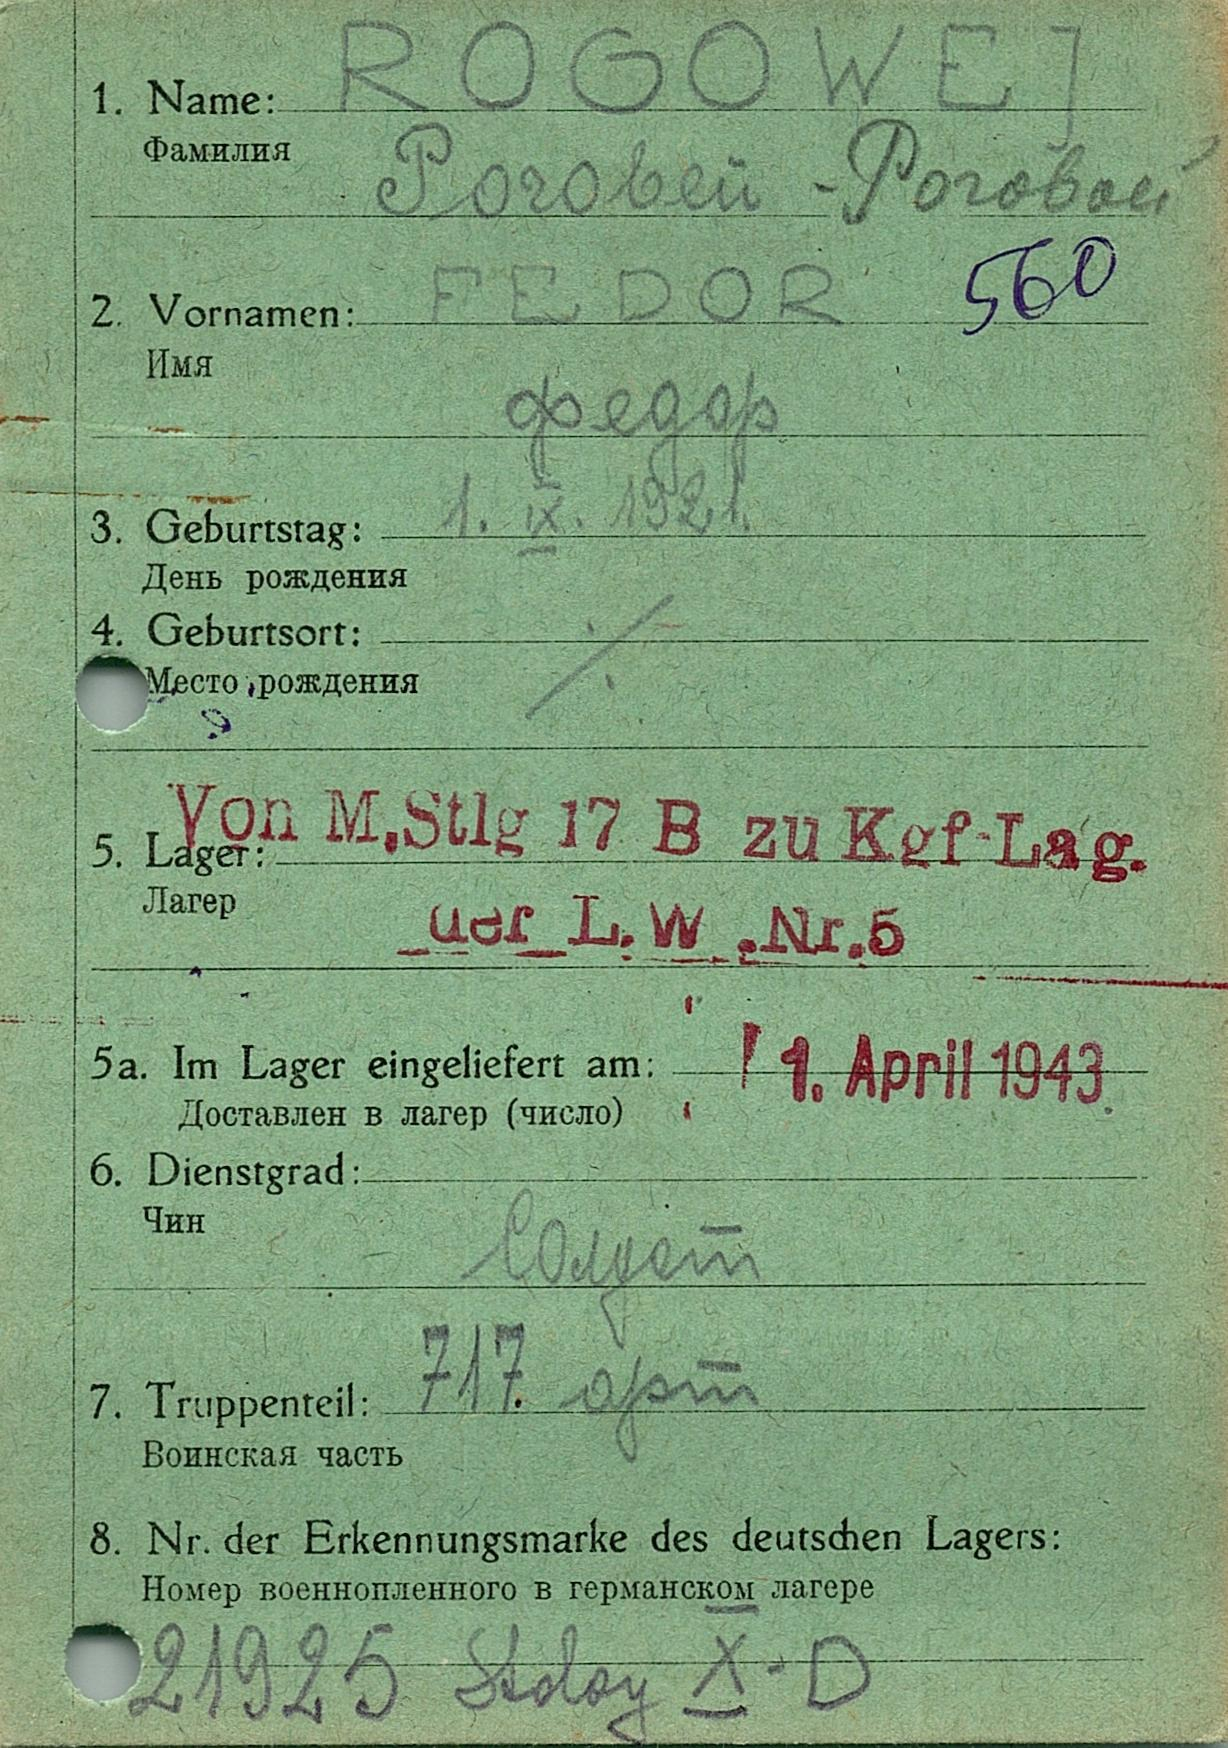 1. Name: ROGOWEJ
Фамилия
Роговей - Роговой
2. Vornamen: FEDOR 560
Имя
федор
3. Geburtstag: 1. IX. 1921.
День рождения
4. Geburtsort: ./.
Место рождения
Von M.Stlg 17 B zu Kgf-Lag.
5. Lager:
Лагер
der L.W.Nr.5
5a. Im Lager eingeliefert am: 1. April 1943
Доставлен в лагер (число)
6. Dienstgrad:
Чин
Солдат
7. Truppenteil: 717. арт
Воинская часть
8. Nr. der Erkennungsmarke des deutschen Lagers:
Номер военнопленного в германском лагере
21925 Stalag X-D